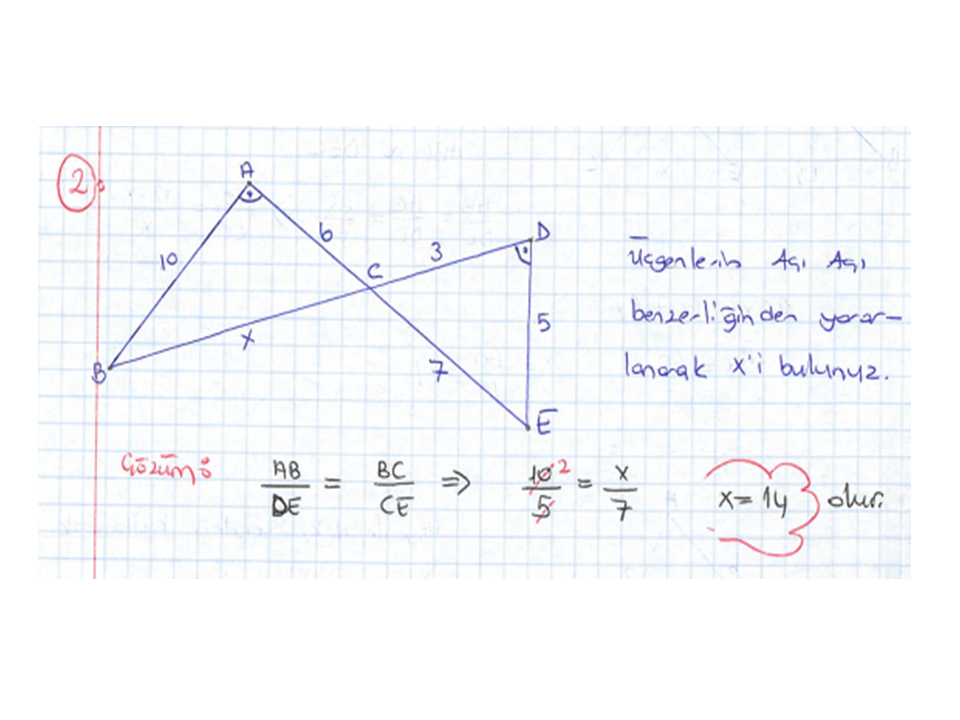 2
A
6
D
3
10
C
5
x
B
7
E
Üçgenlerin Açı Açı
benzerliğinden yarar-
lanarak x'i bulunuz.
Çözüm:
AB/DE = BC/CE ⇒ 10/5 2 = x/7 x=14 olur.